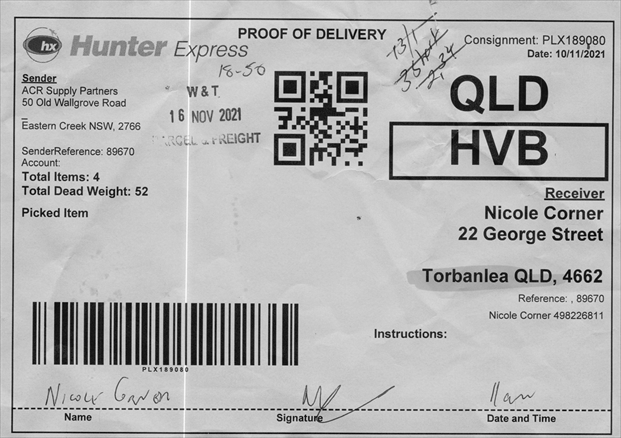 hx Hunter Express
PROOF OF DELIVERY
Consignment: PLX189080
Date: 10/11/2021
18-50
Sender
ACR Supply Partners
50 Old Wallgrove Road
_
Eastern Creek NSW, 2766
W & T
16 NOV 2021
PARCEL & FREIGHT
SenderReference: 89670
Account:
Total Items: 4
Total Dead Weight: 52
Picked Item
QLD
HVB
Receiver
Nicole Corner
22 George Street
Torbanlea QLD, 4662
Reference: , 89670
Nicole Corner 498226811
Instructions:
PLX189080
Nicole Corner
11am
Name
Signature
Date and Time